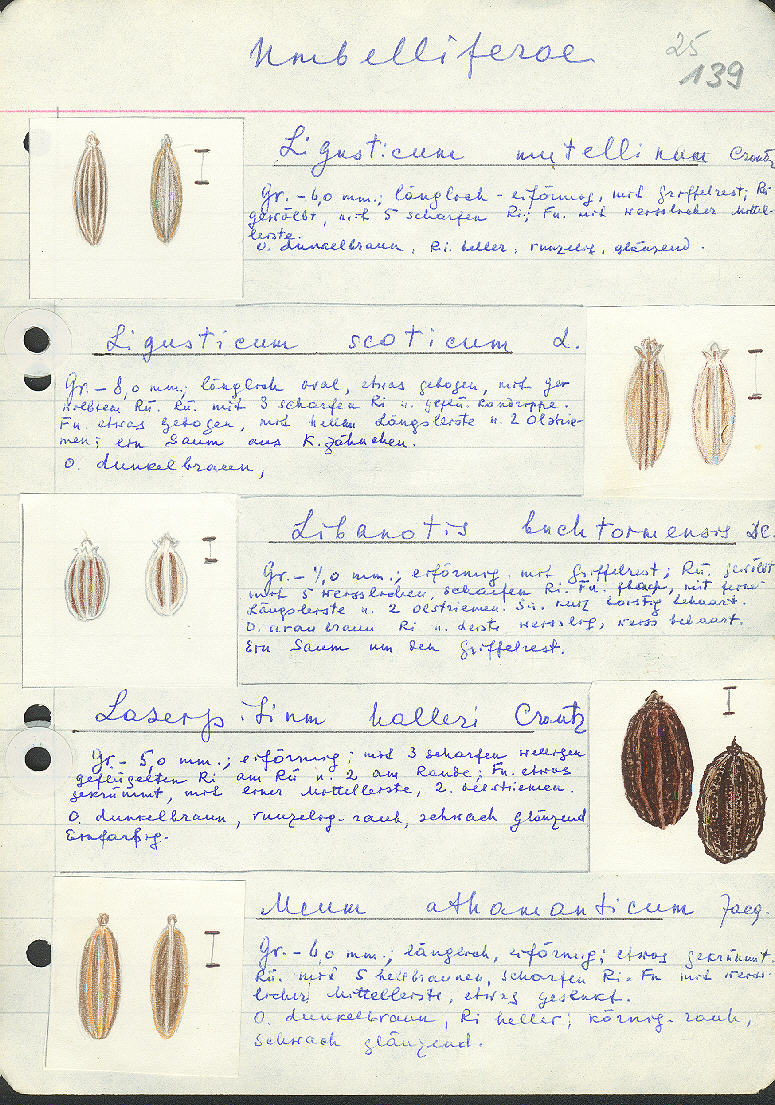 Umbelliferae
25
139
Ligusticum mutellinum Crantz
Gr. - 6,0 mm.; länglich - eiförmig, mit Griffelrest; Rü
gewölbt, mit 5 scharfen Ri; Fu. mit weisslicher Mittel-
leiste.
O. dunkelbraun, Ri heller, runzelig, glänzend.
Ligusticum scoticum L.
Gr. - 8,0 mm.; länglich oval, etwas gebogen, mit ge-
wölbtem Rü. Rü. mit 3 scharfen Ri u. geflü. Randrippe.
Fu. etwas gebogen, mit hellen Längsleiste u. 2 Ölstrie-
men; ein Saum aus K. zähnchen.
O. dunkelbraun,
Libanotis buchtormensis DC.
Gr. - 4,0 mm.; eiförmig, mit Griffelrest; Rü. gewölbt
mit 5 weisslichen, scharfen Ri. Fu. flach, mit feiner
Längsleiste u. 2 Ölstriemen. Si. kurz borstig behaart.
O. graubraun Ri u. Leiste weisslich, weiss behaart.
Ein Saum um den Griffelrest.
Laserpitium halleri Crantz
Gr. - 5,0 mm.; eiförmig; mit 3 scharfen welligen
geflügelten Ri am Rü u. 2 am Rande; Fu. etwas
gekrümmt, mit einer Mittelleiste, 2. Oelstriemen.
O. dunkelbraun, runzelig-rauh, schwach glänzend
Einfarbig.
Meum athamanticum Jacq.
Gr. - 6,0 mm.; länglich, eiförmig; etwas gekrümmt.
Rü. mit 5 hellbraunen, scharfen Ri. Fu mit weiss-
licher Mittelleiste, etwas gesenkt.
O. dunkelbraun, Ri heller; körnig-rauh,
schwach glänzend.